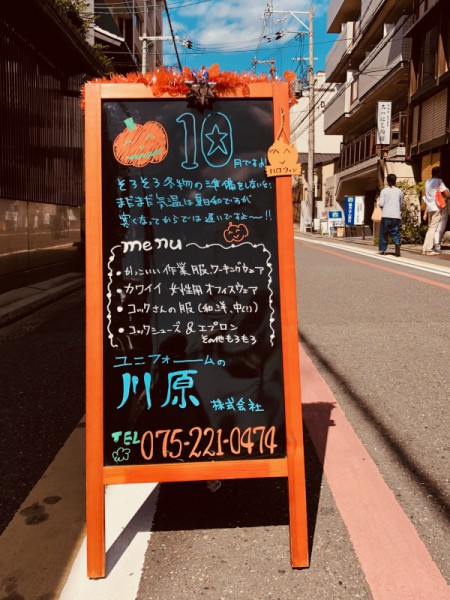 10月ですよ
ハロウィン
そろそろ冬物の準備をしないと!
まだまだ気温は夏日和ですが
寒くなってからでは遅いですよ〜!!
menu
・かっこいい作業服、ワーキングウェア
・カワイイ 女性用オフィスウェア
・コックさんの服(和、洋、中(^^))
・コックシューズ & エプロン
その他もろもろ
ユニフォームの
川原 株式会社
TEL 075-221-0474